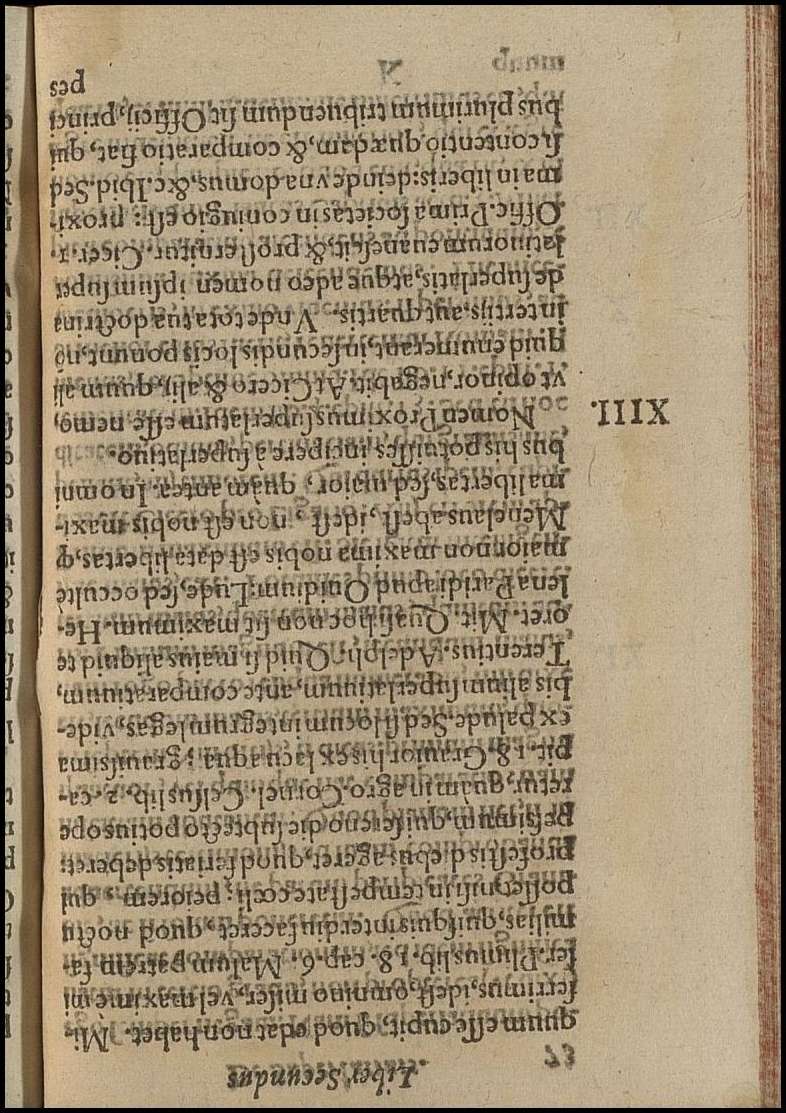 Liber Secundus.
quum esse cupit, quod edat non habet. Mi-
serrimus, idest, omnino miser, vel maximè mi
ser. Plinius lib. 18. cap. 6. Malum patrem fa-
milias, quisquis interdiu faceret, quod noctu
posset, nisi in tempestate cœli: peiorem, qui
profestis diebus ageret, quod feriatis deberet:
pessimum, qui sereno die sub tecto potius ope
retur, quàm in agro. Cornel. Celsus lib. 2. ca-
pit. 18. Grauior his ex lacu aqua: grauissima
ex palude. Sed si locum integrum legas, vide-
bis alium superlatiuum, ante comparatiuum,
Terentius. Adelph. Quid si maius aliquid te
oret. Mit. Quasi hoc non sit maximum. He-
lena Paridi apud Ouidium: Lude, sed occultè
maior non maxima nobis est data libertas, q̃
Menelaus abest, idest, non est nobis maxi-
ma libertas, sed maior, quàm antea. In omni
bus his potuisses incipere à superlatiuo.
XIII. Nomen Proximus superlatum esse nemo,
vt opinor, negabit. At Cicero & alij, quum ali
quid enumerant, in secundis locis ponunt, nõ
in tertijs, aut quartis. Vnde tota tua doctrina
de superlatis, atque adeo nomen ipsum super
latiuorum euanescit, & prosternitur. Cicer. 1.
Offic. Prima societas in coniugio est: proxi-
ma in liberis: deinde vna domus, &c. Ibid. Sed
si contentio quædam, & comparatio fiat, qui
bus plurimum tribuendum sit Officij, princi
pes